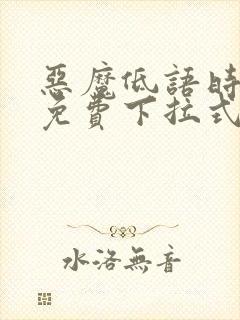 惡魔低語時
免費下拉式
水洛無音